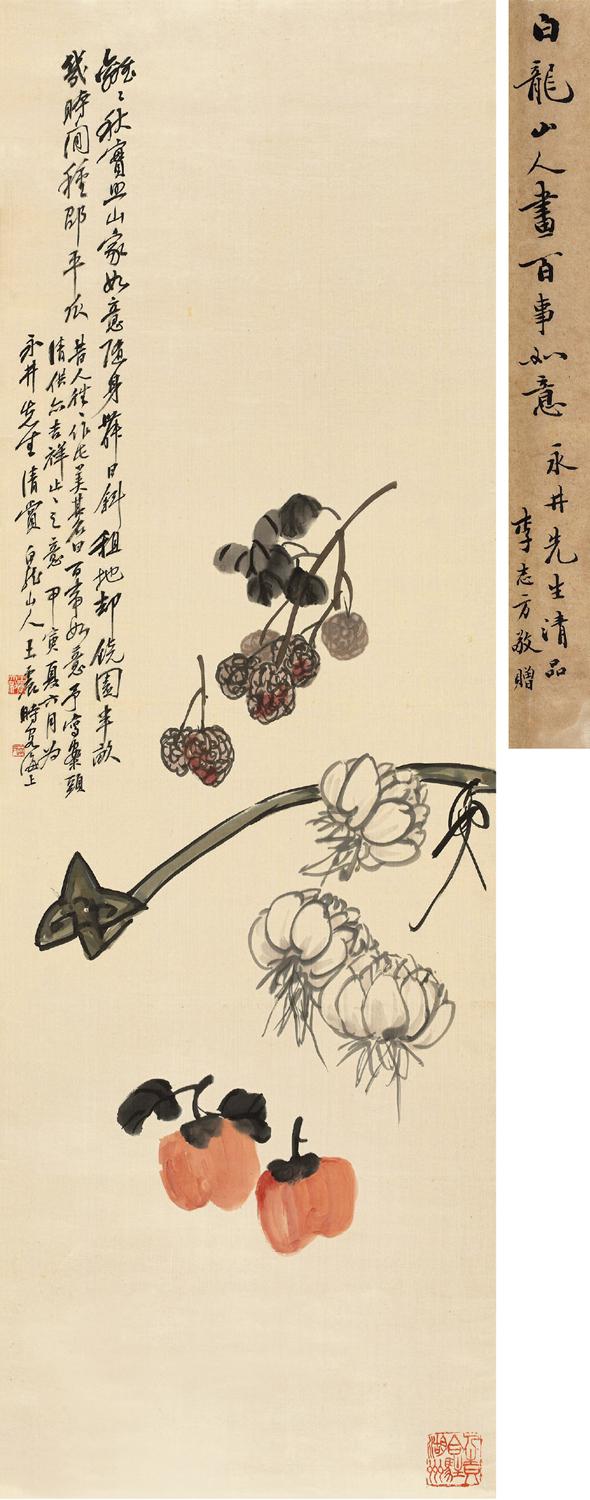 白龍山人畫百事如意
永井先生清品
李志方敬贈
離〻秋實出山家如意隨身日斜租地却饒園半畝
幾時閒種邵平瓜
昔人往〻作此美其名曰百事如意予寫案頭
清供亦吉祥止〻之意 甲寅夏六月為
永井先生清賞 白龍山人王震時客海上